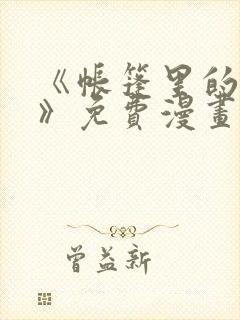 《帐篷里的
》免費漫畫
曾益新